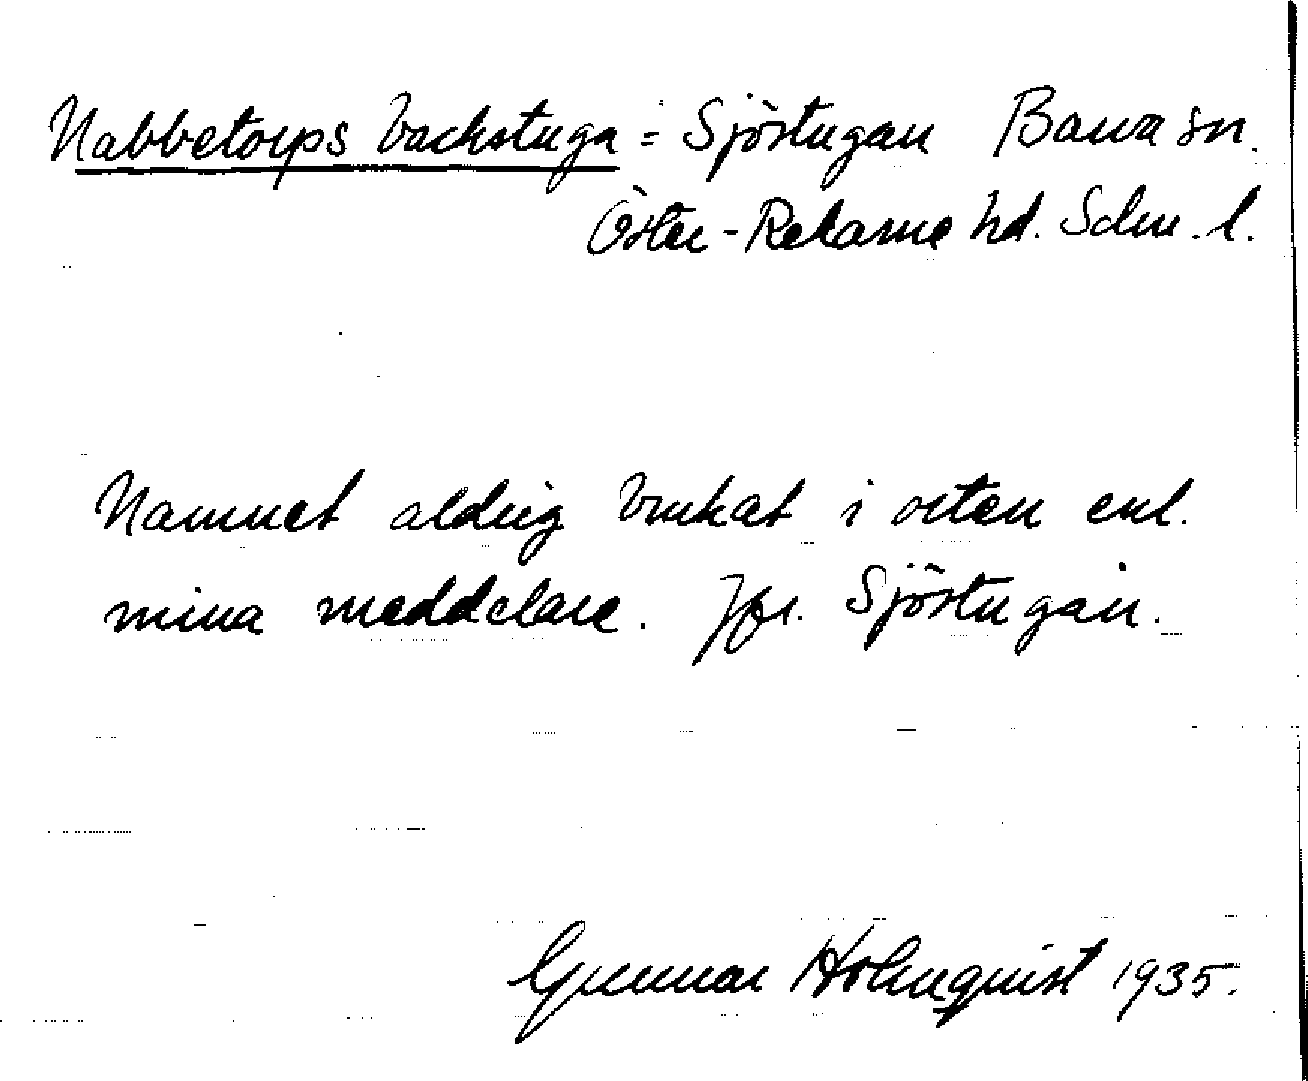 Nabbetorps backstuga = Sjöstugan Barva sn.
Öster-Rekarne hd. Södm. l.
Namnet aldrig brukat i orten enl.
mina meddelare. Jfr. Sjöstugan.
Gunnar Holmquist 1935.